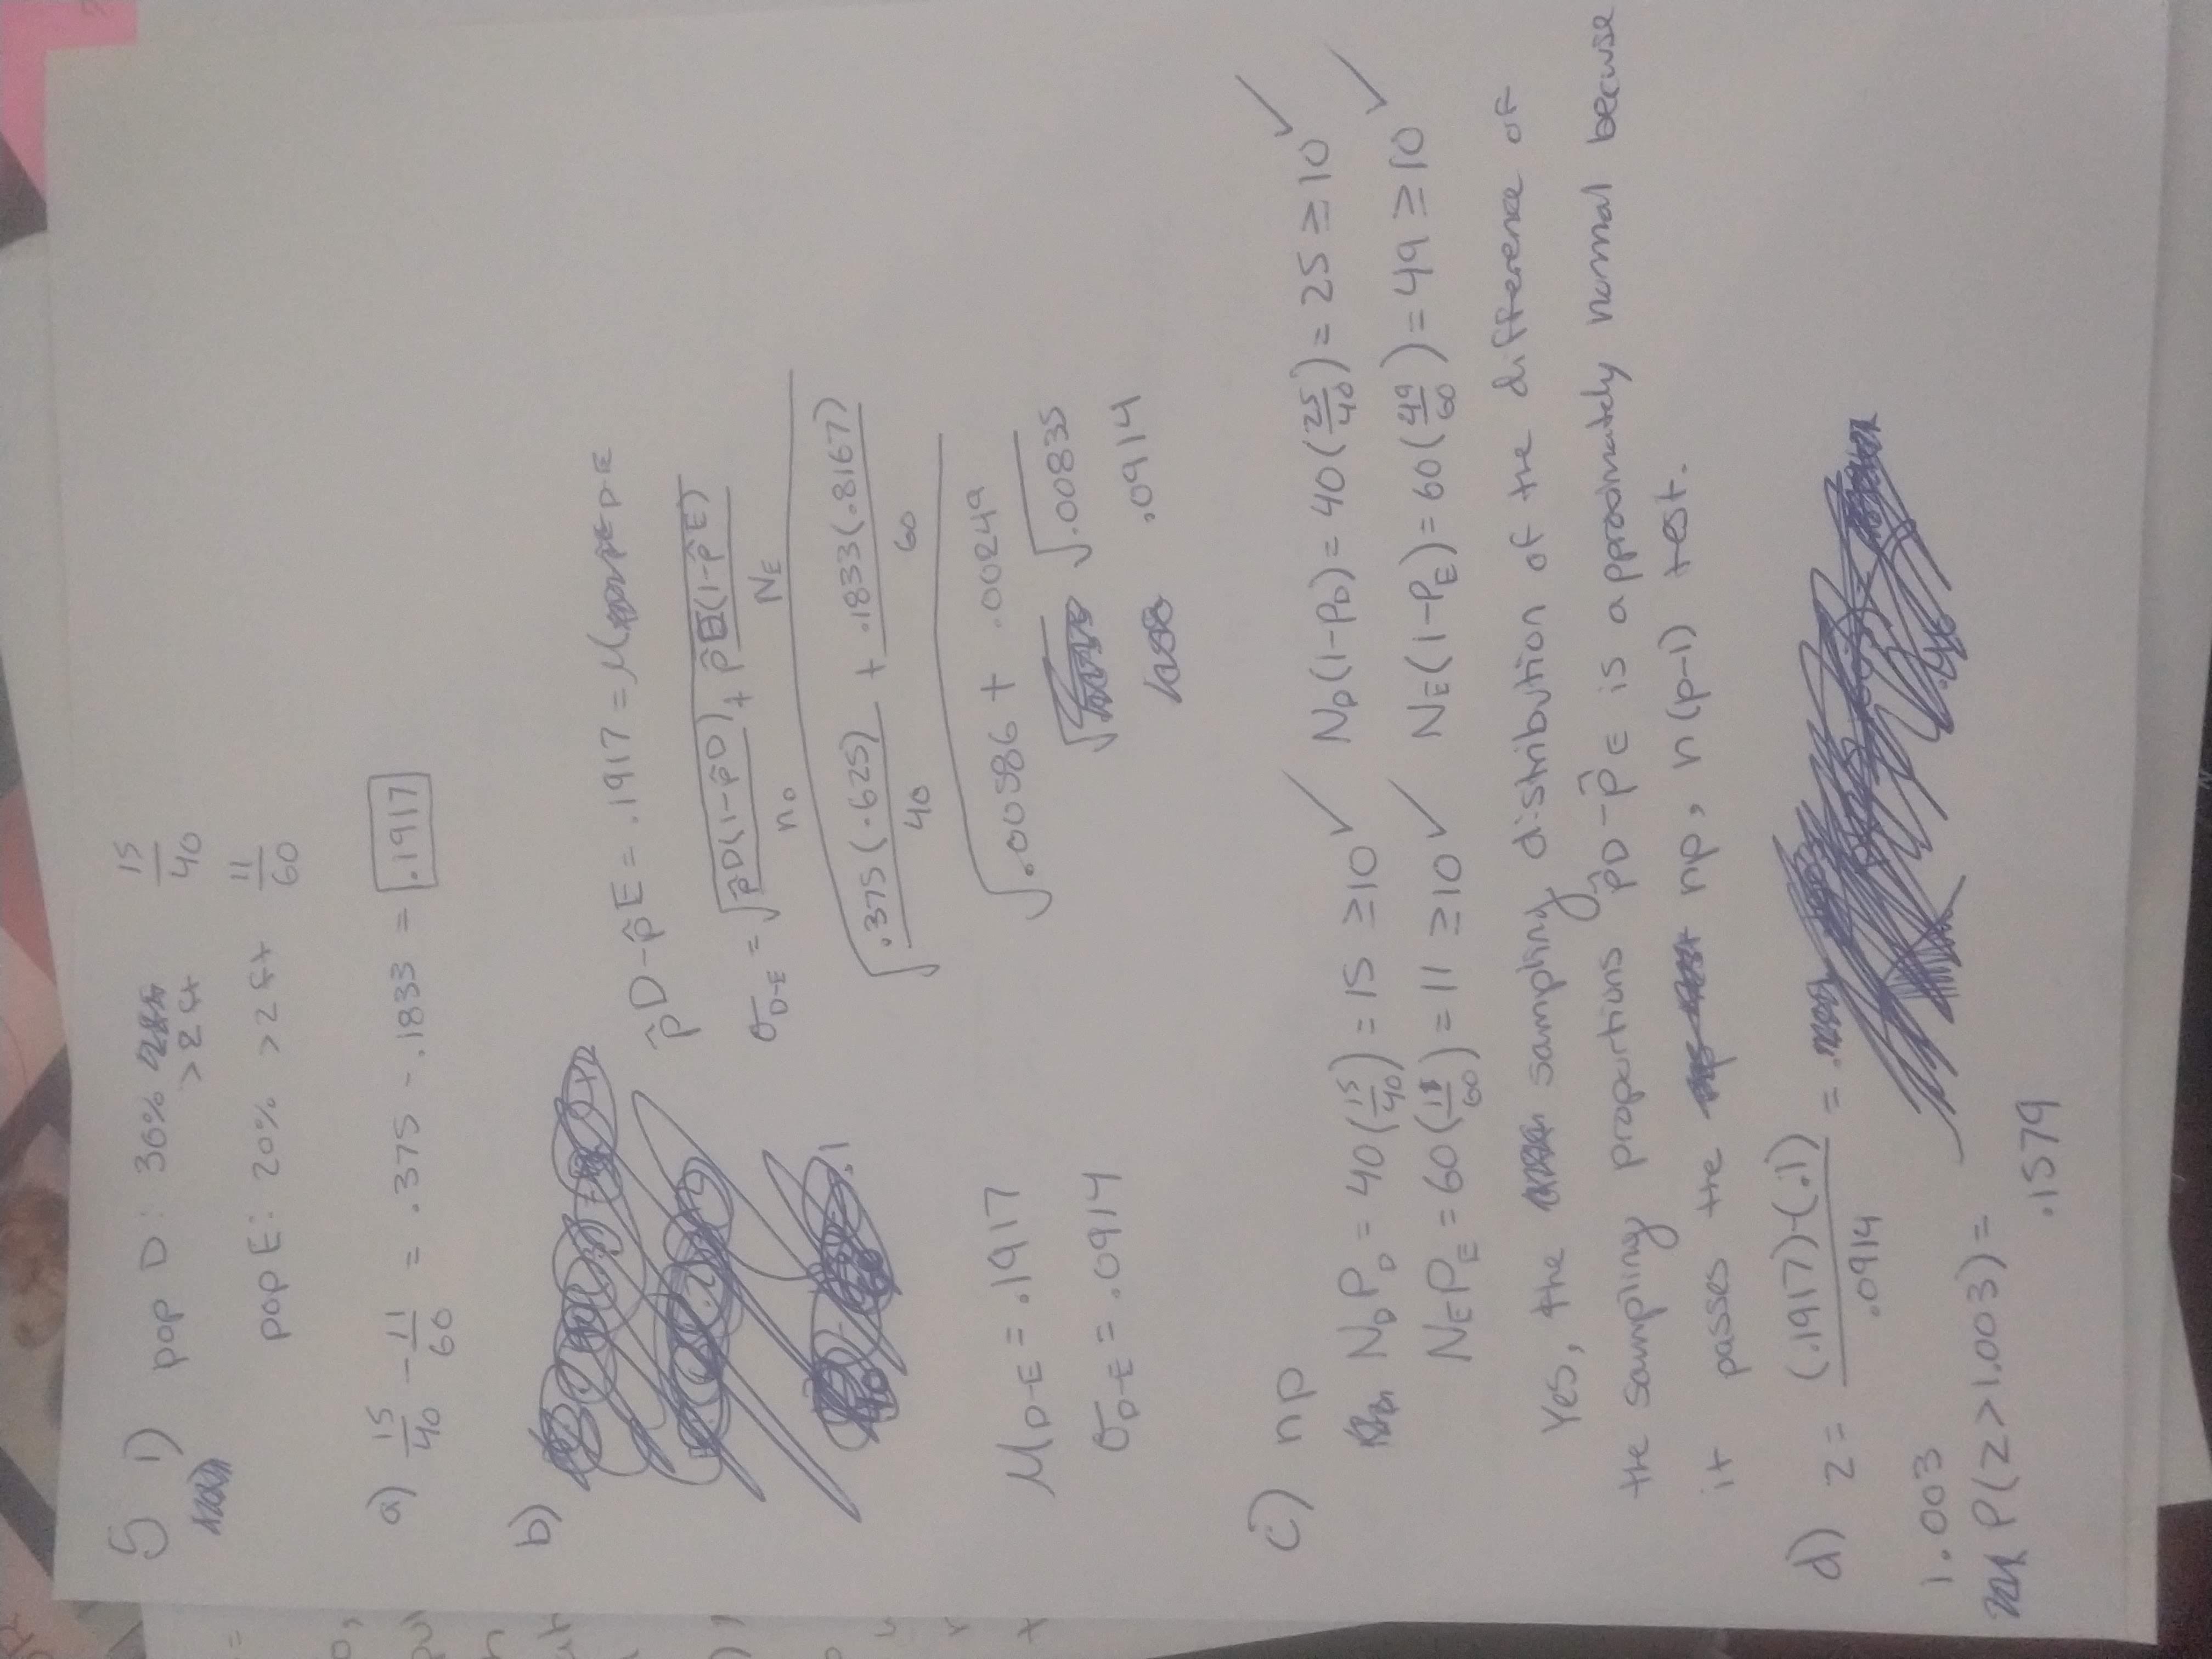 5 1) pop D: 30% >2ft 15/40
pop E: 20% >2ft 11/60
a) 15/40 - 11/60 = .375 - .1833 = .1917
b) p̂D-p̂E = .1917 = M
σD-E = √(p̂D(1-p̂D)/nD + p̂E(1-p̂E)/NE)
√(.375(.625)/40 + .1833(.8167)/60)
√.00586 + .00249
√.00835
.0914
.1
MD-E = .1917
σD-E = .0914
c) np
NDPD = 40(15/40) = 15 ≥10 ✓ ND(1-PD) = 40(25/40) = 25 ≥ 10 ✓
NEPE = 60(11/60) = 11 ≥10 ✓ NE(1-PE) = 60(49/60) = 49 ≥ 10 ✓
Yes, the sampling distribution of the difference of
the sampling proportions p̂D-p̂E is approximately normal because
it passes the np, n(p-1) test.
d) z = (.1917)-(.1)/.0914 =
1.003
P(z>1.003) =
.1579